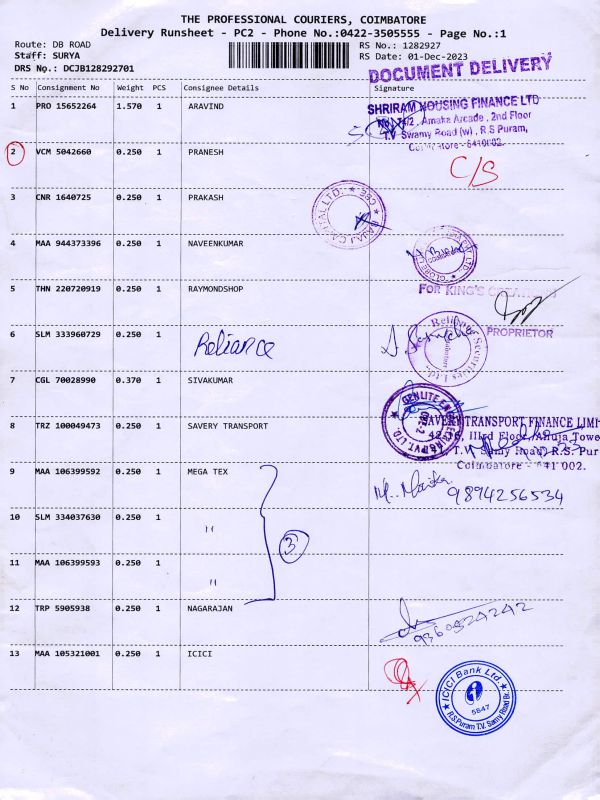 THE PROFESSIONAL COURIERS, COIMBATORE
Delivery Runsheet - PC2 - Phone No.:0422-3505555 - Page No.:1
Route: DB ROAD
RS No.: 1282927
Staff: SURYA
RS Date: 01-Dec-2023
DRS No.: DCJB128292701
DOCUMENT DELIVERY
S No Consignment No Weight PCS Consignee Details Signature
1 PRO 15652264 1.570 1 ARAVIND
SHRIRAM HOUSING FINANCE LTD
Amaka Arcade, 2nd Floor
T.V Swamy Road (w), R.S Puram,
Coimbatore - 641002.
2 VCM 5042660 0.250 1 PRANESH
C/S
3 CNR 1640725 0.250 1 PRAKASH
BAJAJ CAPITAL LTD. * CBE *
4 MAA 944373396 0.250 1 NAVEENKUMAR
5 THN 220720919 0.250 1 RAYMONDSHOP
FOR KING'S
PROPRIETOR
6 SLM 333960729 0.250 1 Reliance
Reliance Securities Ltd.
7 CGL 70028990 0.370 1 SIVAKUMAR
8 TRZ 100049473 0.250 1 SAVERY TRANSPORT
SAVERY TRANSPORT FINANCE LIMI
IIIrd Floor, Ahuja Towe
T.V Samy Road, R.S. Pur
Coimbatore - 641 002.
9 MAA 106399592 0.250 1 MEGA TEX
9894256534
10 SLM 334037630 0.250 1 "
3
11 MAA 106399593 0.250 1 "
12 TRP 5905938 0.250 1 NAGARAJAN
9360924242
13 MAA 105321001 0.250 1 ICICI
ICICI Bank Ltd.
5847
R.S.Puram T.V. Samy Road Br.